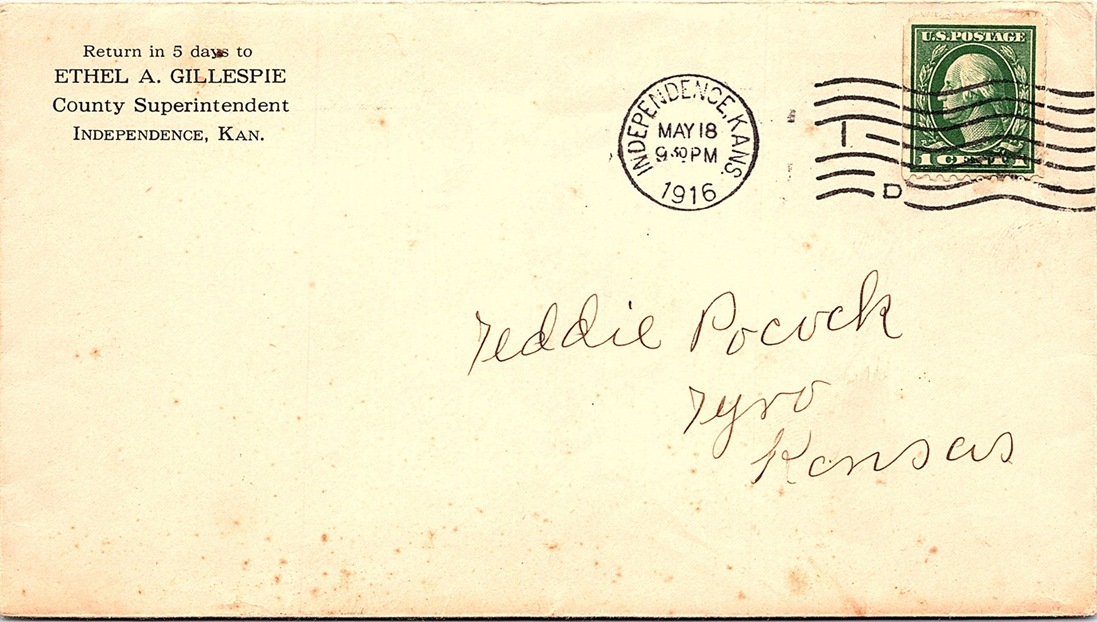 Return in 5 days to
ETHEL A. GILLESPIE
County Superintendent
INDEPENDENCE, KAN.
INDEPENDENCE, KANS.
MAY 18
9 30 PM
1916
1
D
U.S. POSTAGE
1 CENT 1
Teddie Pocock
Tyro
Kansas